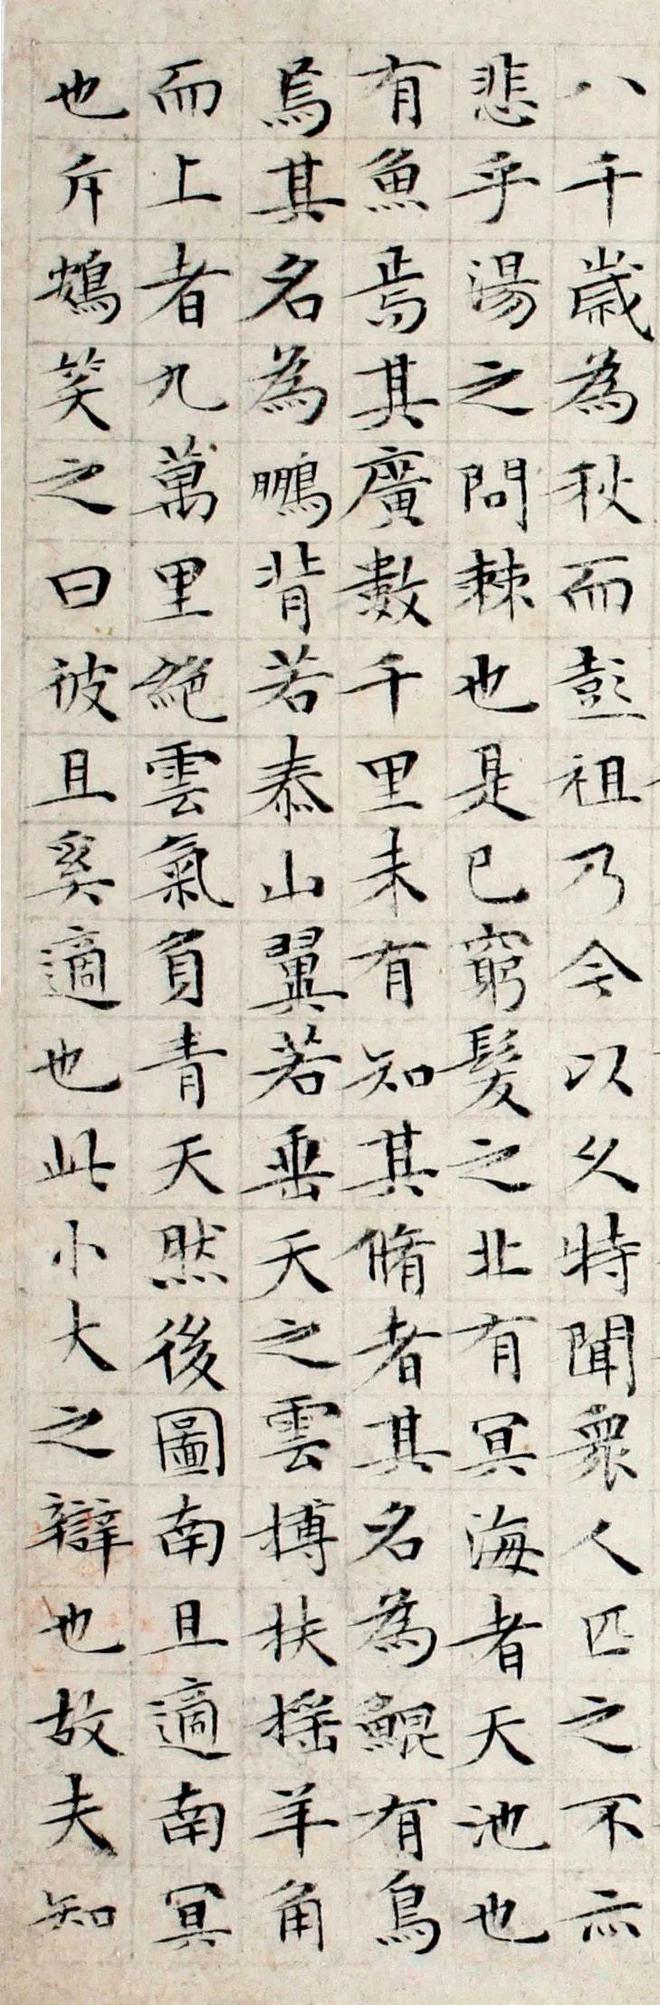 八千歲為秋而彭祖乃今以久特聞衆人匹之不亦
悲乎湯之問棘也是已窮髮之北有冥海者天池也
有魚焉其廣數千里未有知其脩者其名為鯤有鳥
焉其名為鵬背若泰山翼若垂天之雲搏扶搖羊角
而上者九萬里絶雲氣負青天然後圖南且適南冥
也斥鴳笑之曰彼且奚適也此小大之辯也故夫知